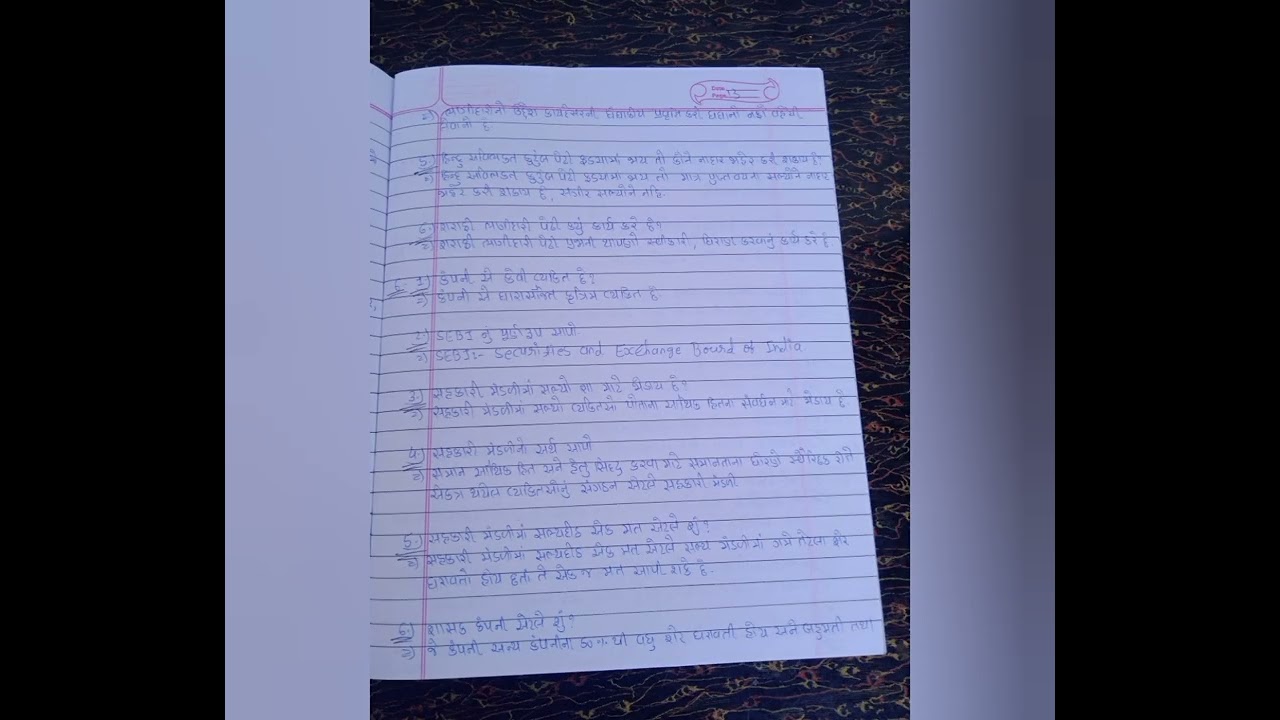 Date
Page 13
→) ભાગીદારીનો ઉદ્દેશ કાયદેસરની ધંધાકીય પ્રવૃત્તિ કરી ધંધાનો નફો વહેંચી
લેવાનો છે.
5.) હિન્દુ અવિભક્ત કુટુંબ પેઢી ફડચામાં જાય તો કોને નાદાર જાહેર કરી શકાય છે?
→) હિન્દુ અવિભક્ત કુટુંબ પેઢી ફડચામાં જાય તો માત્ર પુખ્તવયના સભ્યોને નાદાર
જાહેર કરી શકાય છે, સગીર સભ્યોને નહિ.
6.) શરાફી ભાગીદારી પેઢી કયું કાર્ય કરે છે?
→) શરાફી ભાગીદારી પેઢી પ્રજાની થાપણો સ્વીકારી, ધિરાણ કરવાનું કાર્ય કરે છે.
6. 1) કંપની એ કેવી વ્યકિત છે?
→) કંપની એ ધારાસર્જિત કૃત્રિમ વ્યકિત છે.
2.) SEBI નું પૂર્ણરૂપ આપો.
→) SEBI:- Securities and Exchange Board of India.
3.) સહકારી મંડળીમાં સભ્યો શા માટે જોડાય છે?
→) સહકારી મંડળીમાં સભ્યો વ્યકિતઓ પોતાના આર્થિક હિતના સંવર્ધન માટે જોડાય છે
4.) સહકારી મંડળીનો અર્થ આપો
→) સમાન આર્થિક હિત અને હેતુ સિદ્ધ કરવા માટે સમાનતાના ધોરણે સ્વૈચ્છિક રીતે
એકત્ર થયેલ વ્યકિતઓનું સંગઠન એટલે સહકારી મંડળી
5.) સહકારી મંડળીમાં સભ્યદીઠ એક મત એટલે શું?
→) સહકારી મંડળીમાં સભ્યદીઠ એક મત એટલે સભ્ય મંડળીમાં ગમે તેટલા શેર
ધરાવતો હોય છતાં તે એક જ મત આપી શકે છે.
6.) શાસક કંપની એટલે શું?
→) જે કંપની અન્ય કંપનીના 50% થી વધુ શેર ધરાવતી હોય અને બહુમતી તથા